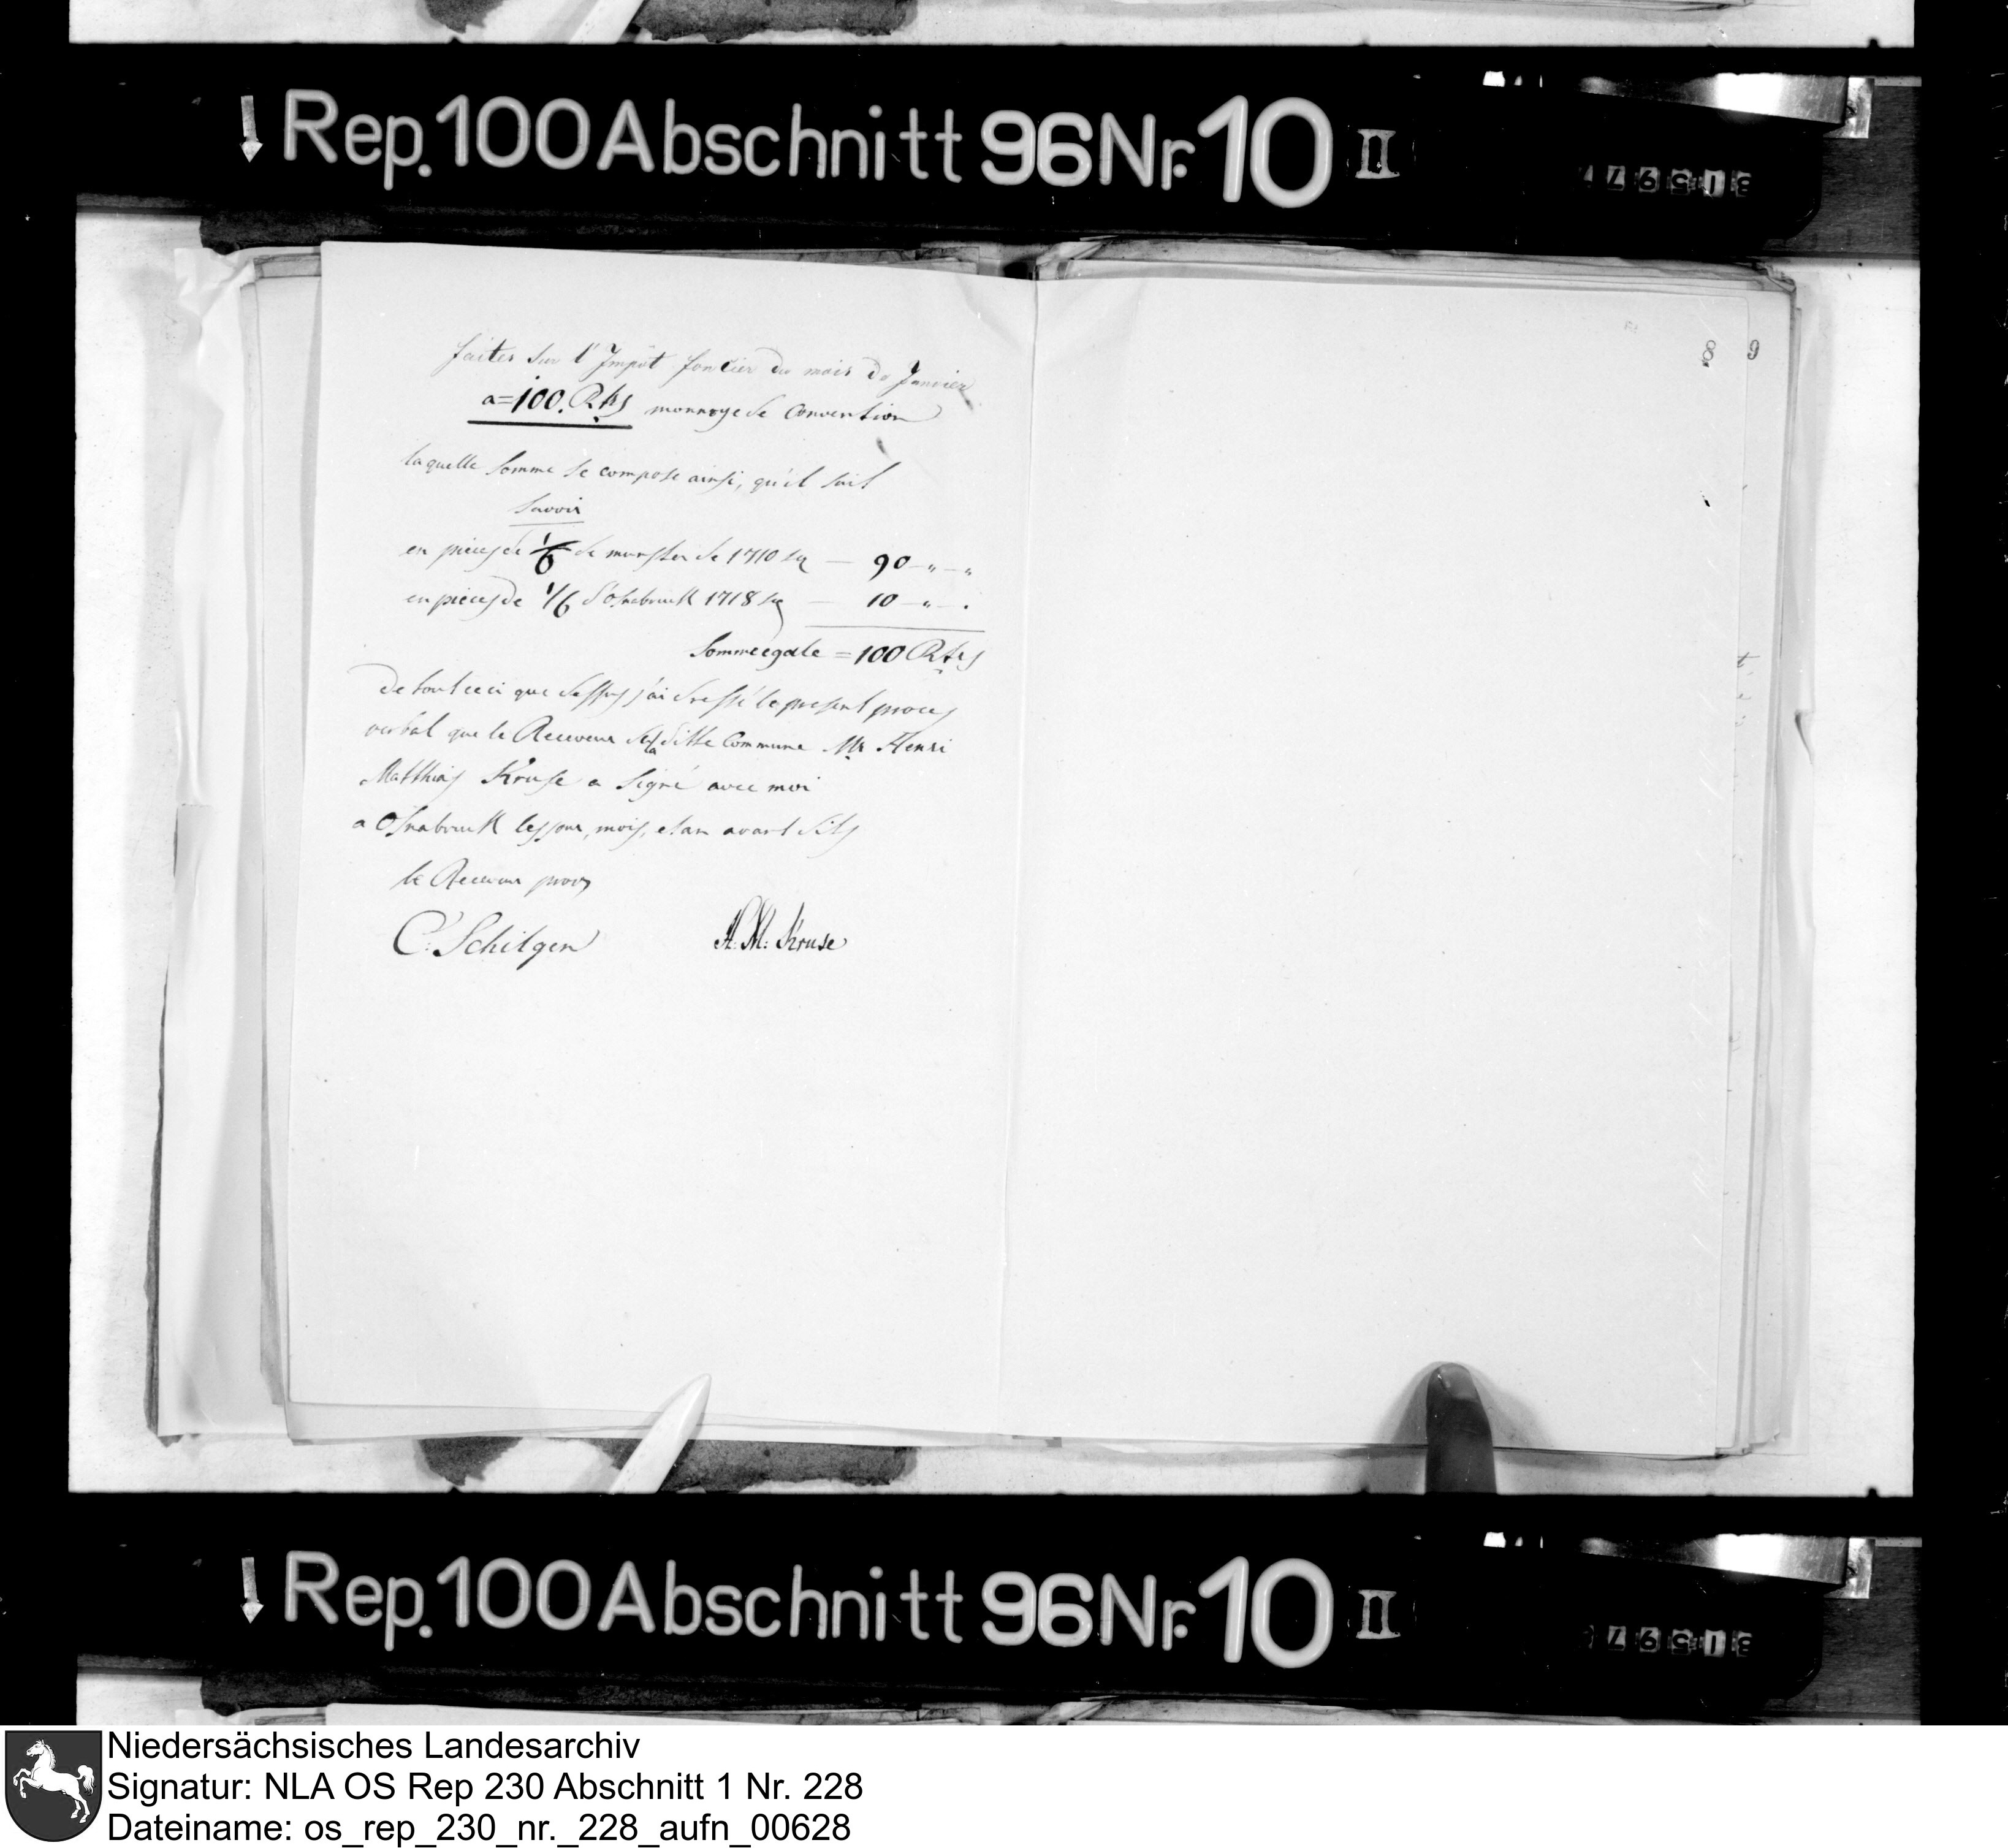 Rep. 100 Abschnitt 96 Nr. 10 II
faites sur l'Impôt foncier du mois de Janvier
a = 100. Rts monnoye de Convention
laquelle somme se compose ainsi, qu'il suit
savoir
en pieces de 1/6 de munster de 1710 — 90 — " — "
en pieces de 1/6 d'Osnabruck 1718 — 10 — " — "
Somme égale = 100 Rts
De tout ceci que dessus j'ai dressé le present proces
verbal que le Receveur de la ditte Commune Mr Henri
Matthias Kruse a signé avec moi
a Osnabruck les jour, mois, et an avant dits
le Receveur prov
C. Schilgen H. M. Kruse
8 9
Rep. 100 Abschnitt 96 Nr. 10 II
Niedersächsisches Landesarchiv
Signatur: NLA OS Rep 230 Abschnitt 1 Nr. 228
Dateiname: os_rep_230_nr._228_aufn_00628